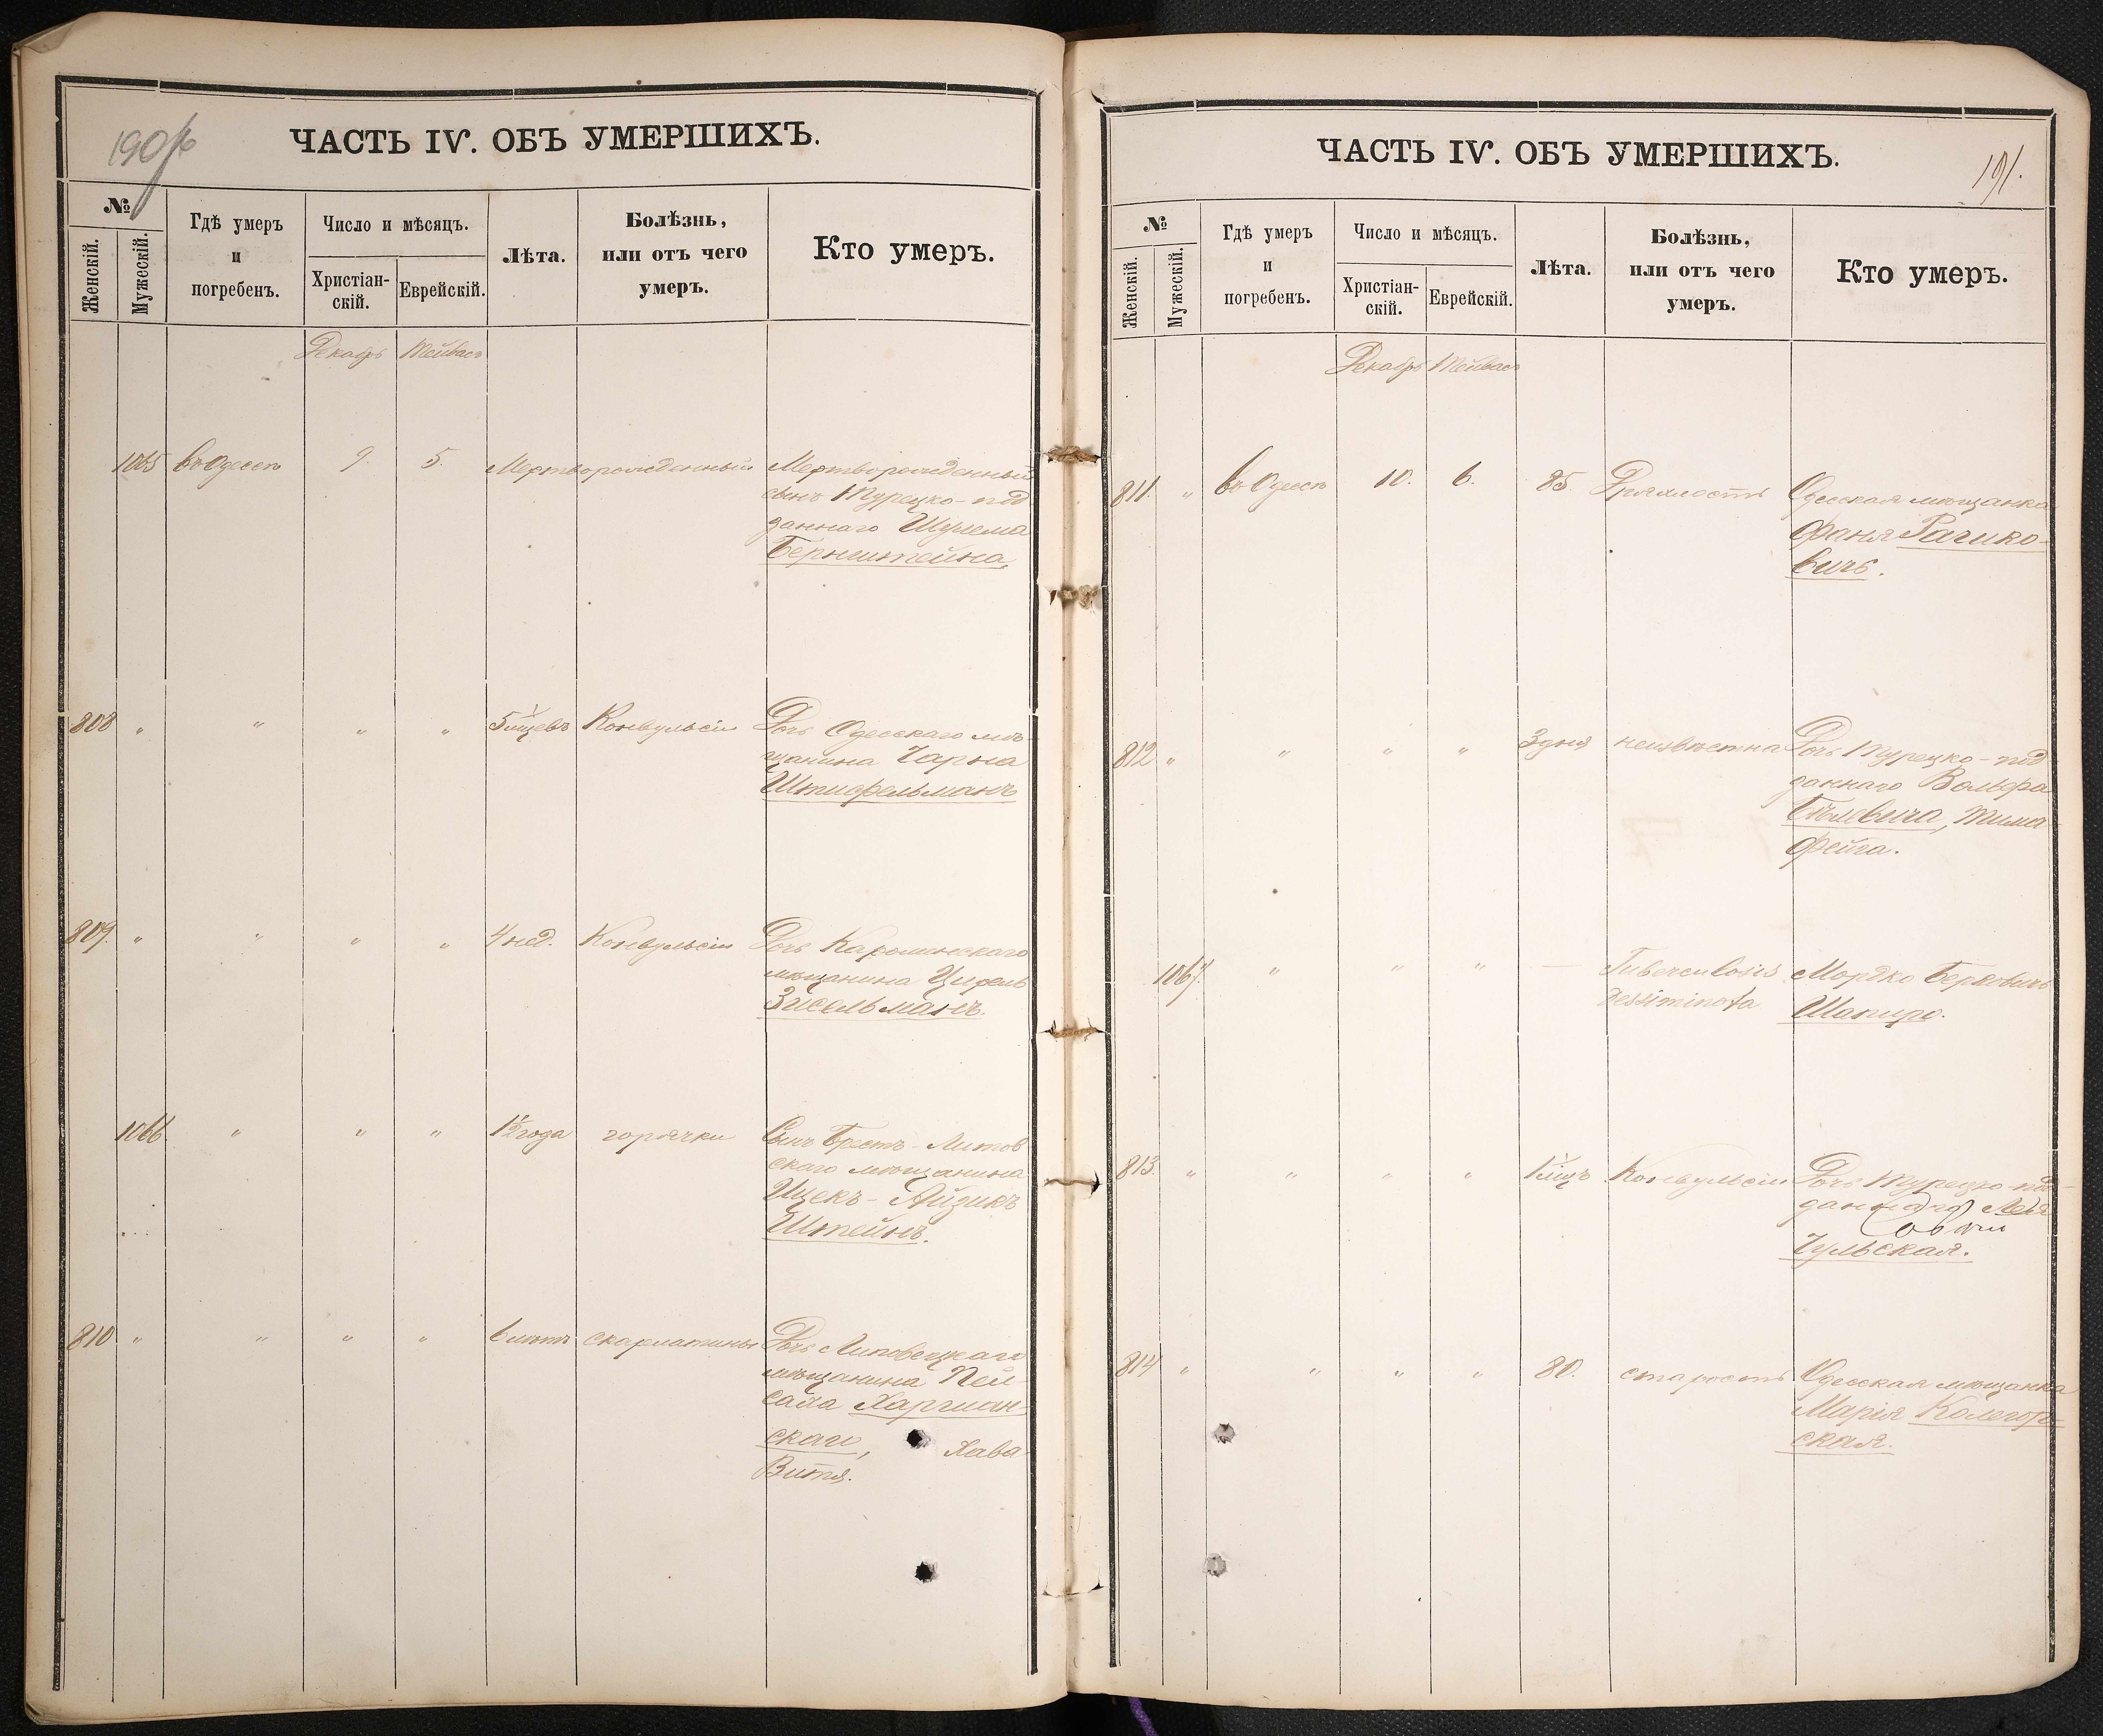 190
ЧАСТЬ IV. ОБЪ УМЕРШИХЪ.
№
Женскій.
Мужескій.
Гдѣ умеръ
и
погребенъ.
Число и мѣсяцъ.
Христіан-
скій.
Еврейскій.
Лѣта.
Болѣзнь,
или отъ чего
умеръ.
Кто умеръ.
Декабрь Тейвасъ
1065 въ Одессѣ 9. 5. Мертворожденный Мертворожденный
сынъ Турецко-под
даннаго Шулема
Бернштейна,
808 " " " " 5 мцевъ Конвульсіи Дочь Одесскаго мѣ-
щанина Чарна
Штифельманъ
809. " " " " 4 нед. Конвульсіи Дочь Каролинскаго
мѣщанина Ципель
Зисельманъ.
1066 " " " 1½ года горячки Сынъ Брестъ-Литов
скаго мѣщанина
Ицекъ-Айзикъ
Штейнъ.
810 " " " " 6 лѣтъ скарлатины Дочь Липовецкаго
мѣщанина Пей-
саха
скаго, Хава
Витя.
ЧАСТЬ IV. ОБЪ УМЕРШИХЪ.
191.
№
Женскій.
Мужескій.
Гдѣ умеръ
и
погребенъ.
Число и мѣсяцъ.
Христіан-
скій.
Еврейскій.
Лѣта.
Болѣзнь,
или отъ чего
умеръ.
Кто умеръ.
Декабрь Тейвасъ
811. " въ Одессѣ 10. 6. 85 Дряхлость Одесская мѣщанка
Фаня Рачико-
вичъ.
812 " " " " 3 дня неизвѣстна Дочь Турецко-под
даннаго Вольфа
Бѣлевича, Тима
Фейга.
1067. " " " — Tuberculosis Мордко Берковичъ
dessiminata Шапиро.
813 " " " " 1 мцъ Конвульсіи Дочь Турецко-под-
даннаго
Чульская.
814 " " " " 80. старость Одесская мѣщанка
Марія Колегор-
ская.